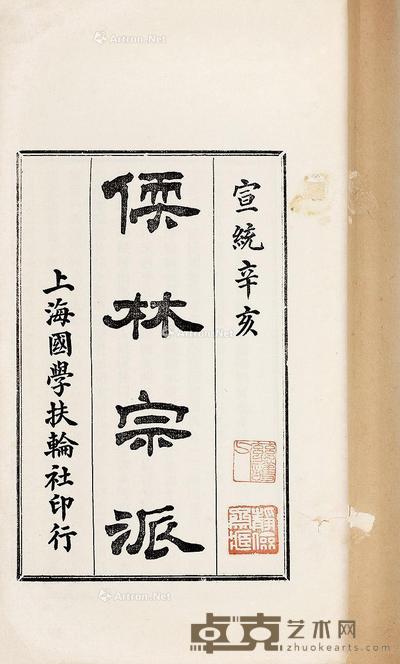 宣統辛亥
儒林宗派
上海國學扶輪社印行
Artron.Net
Artron.Net
Artron.Net
卓克艺术网
zhuokearts.com